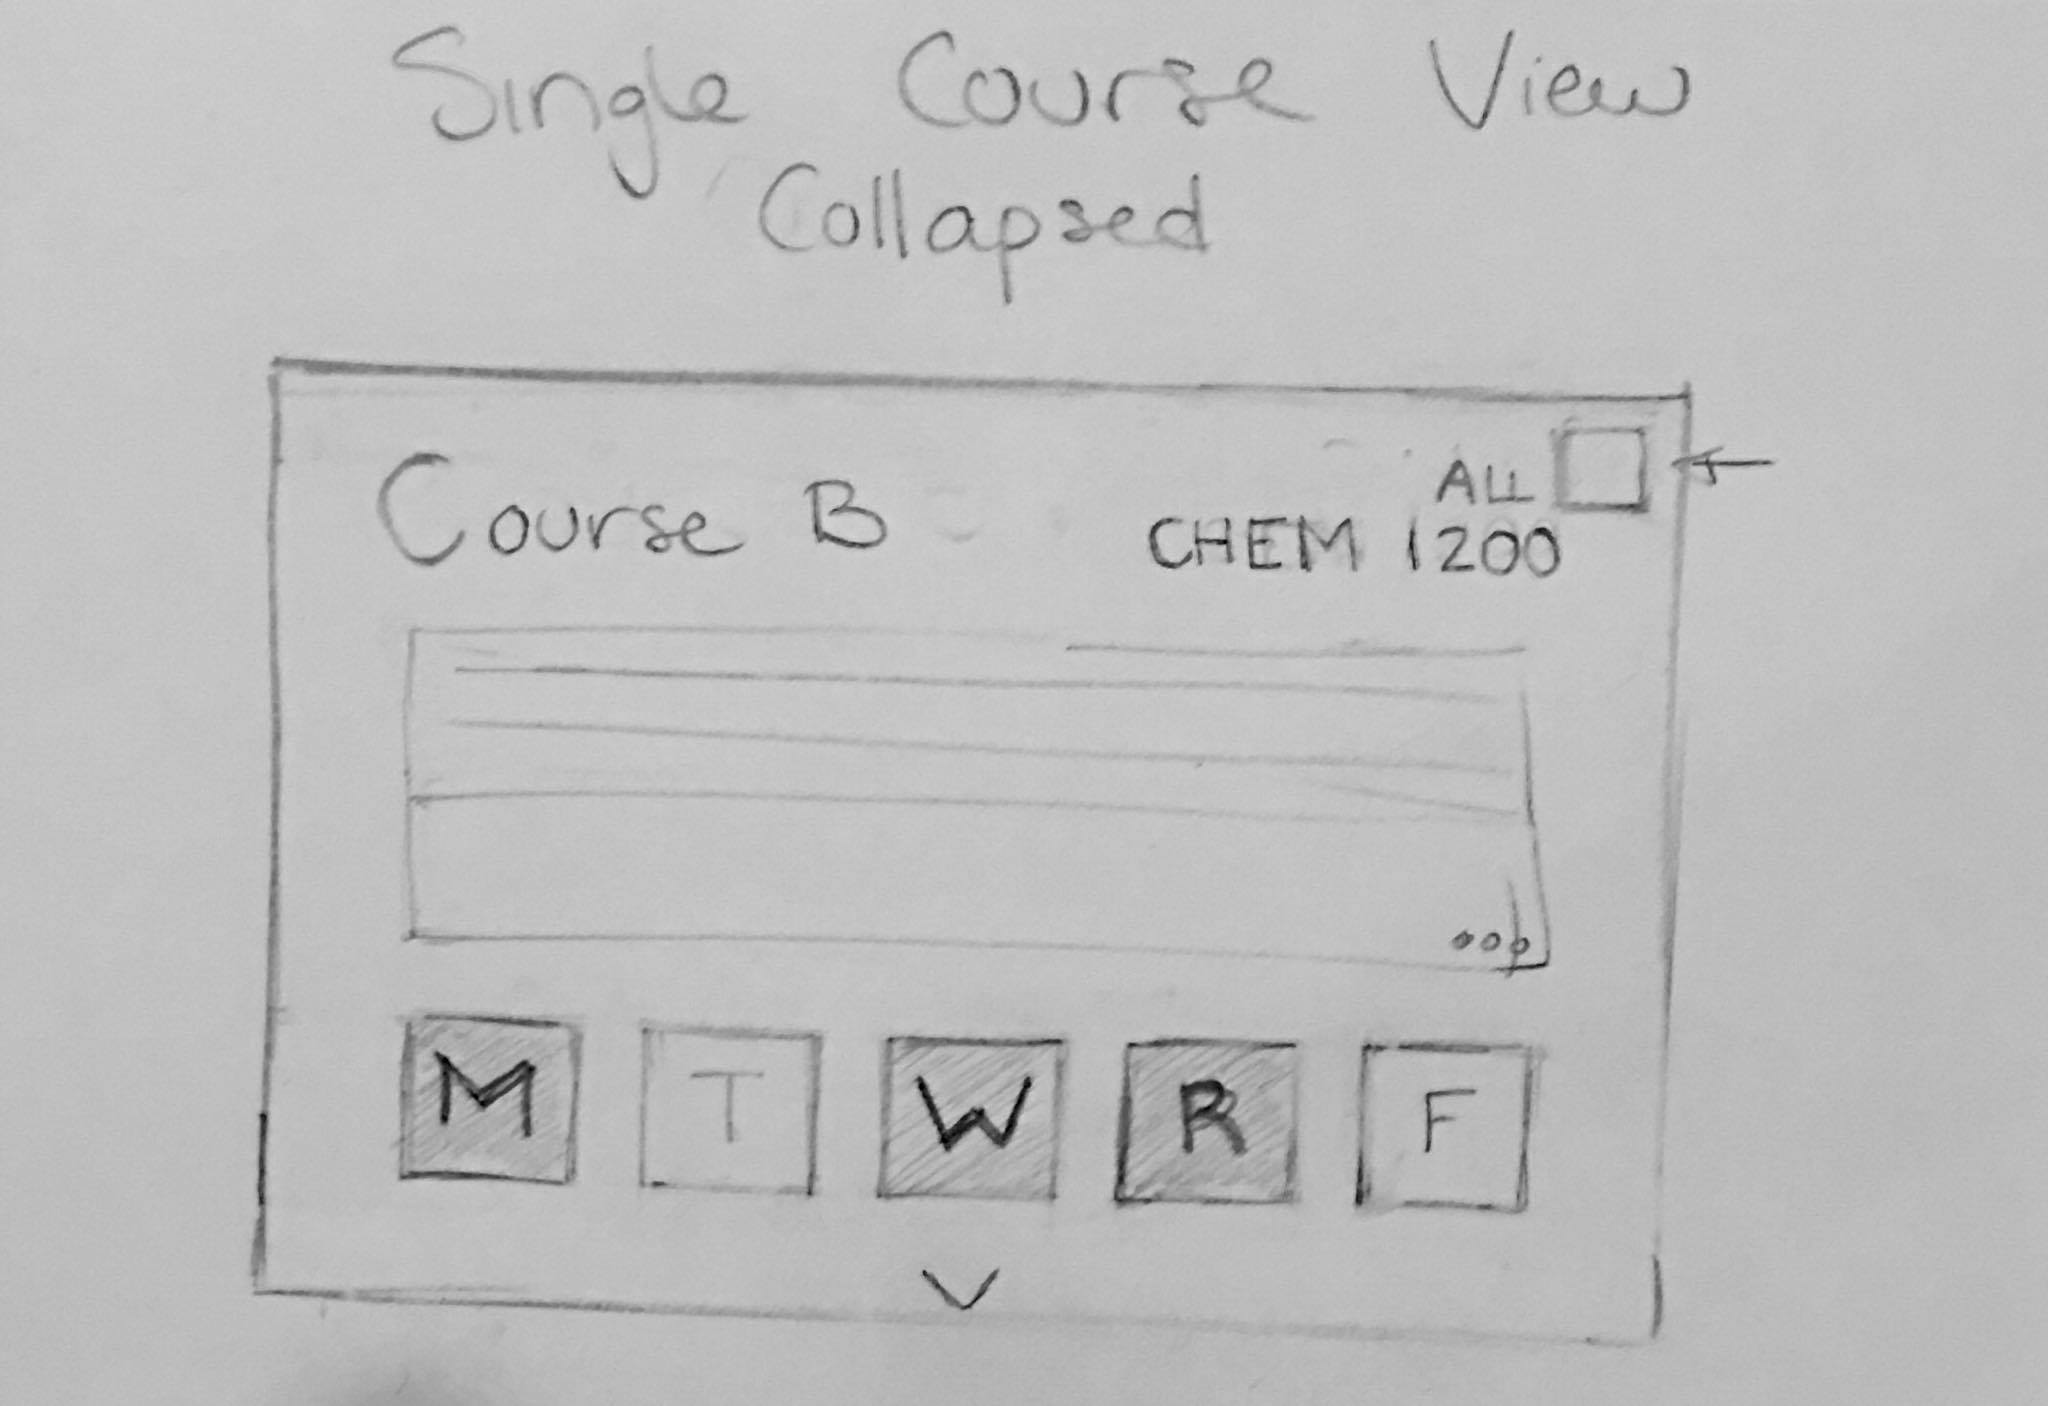 Single Course View
Collapsed
ALL
Course B CHEM 1200
M T W R F